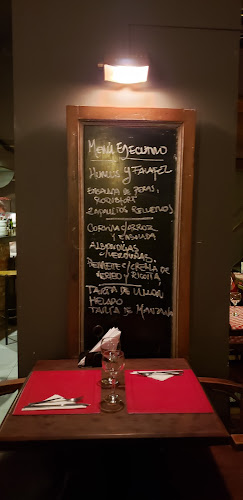 Menú Ejecutivo
Humus y Falafel
Ensalada de Peras,
Roquefort
Zapallitos Rellenos
Corvina c/arroz
y ensalada
Albóndigas
c/verduras.
c/crema de
y ricota
Tarta de
Helado
Tarta de Manzana